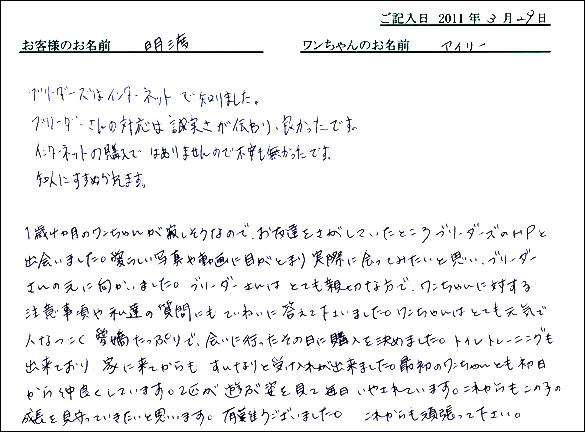 ご記入日 2011年3月29日
お客様のお名前 明満 ワンちゃんのお名前 アイリー
ブリーダーズはインターネットで知りました。
ブリーダーさんの対応は誠実さが伝わり、良かったです。
インターネットの購入ではありませんので不安も無かったです。
知人にすすめられます。
1歳4ヶ月のワンちゃんが寂しそうなので、お友達をさがしていたところブリーダーズのHPと
出会いました。愛らしい写真や動画に目がとまり実際に会ってみたいと思い、ブリーダー
さんの元に向かいました。ブリーダーさんは とても親切な方で、ワンちゃんに対する
注意事項や私達の質問にも ていねいに 答えて下さいました。ワンちゃんは とても元気で
人なつっこく 愛嬌たっぷりで、会いに行ったその日に購入を決めました。トイレトレーニングも
出来ており 家に来てからも すんなりと受け入れが出来ました。最初のワンちゃんとも初日
から仲良くしています。2匹が 遊ぶ姿を見て毎日 いやされています。これからもこの子の
成長を見守っていきたいと思います。 有難うございました。 これからも頑張って下さい。